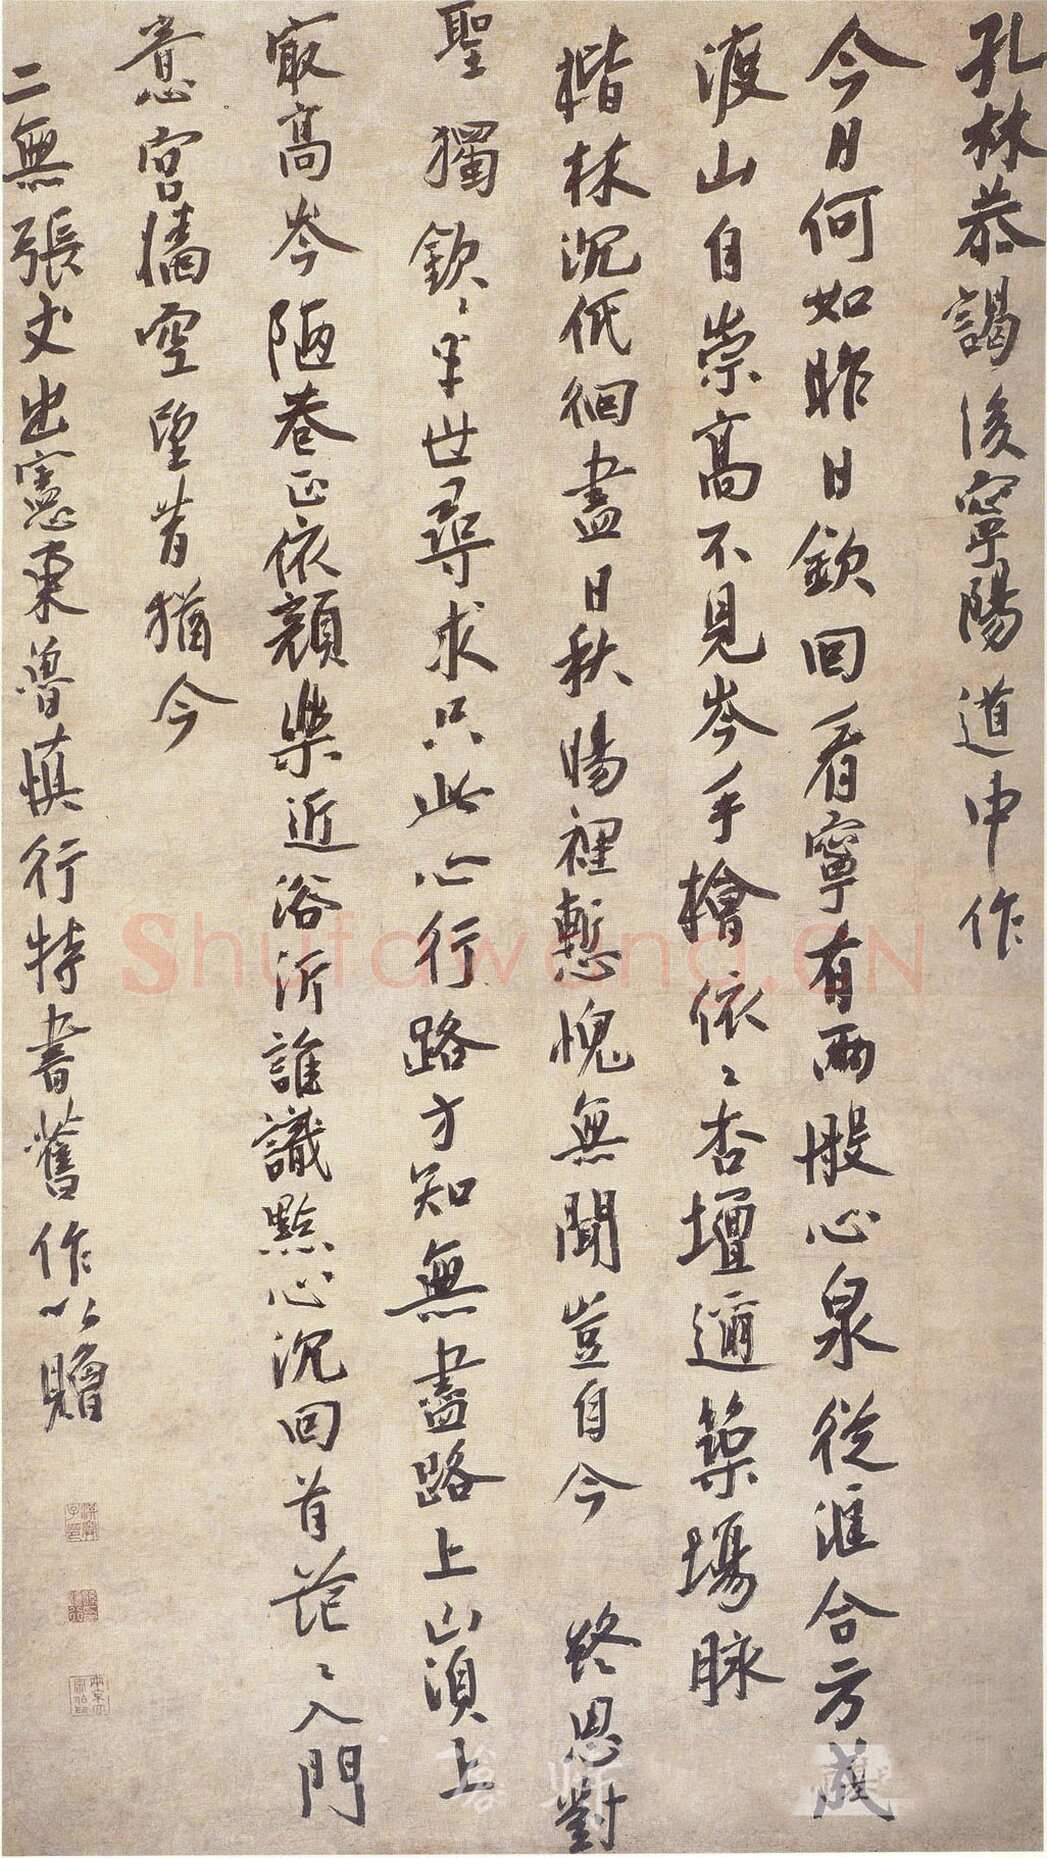 孔林恭謁後寧陽道中作
今日何如昨日欽回看寧有兩般心泉從匯合方成
渡山自崇高不見岑手檜依〻杏壇邇築場脉
楷林沉低徊盡日秋暘裡慙愧無聞豈自今 終思對
聖獨欽〻半世尋求只此心行路方知無盡路上山須上
㝡高岑陋巷正依顏樂近浴沂誰識點心沉回首茫〻入門
意宮墻空望昔猶今
二無張丈出憲東魯慎行特書舊作以贈
Shufawang.CN